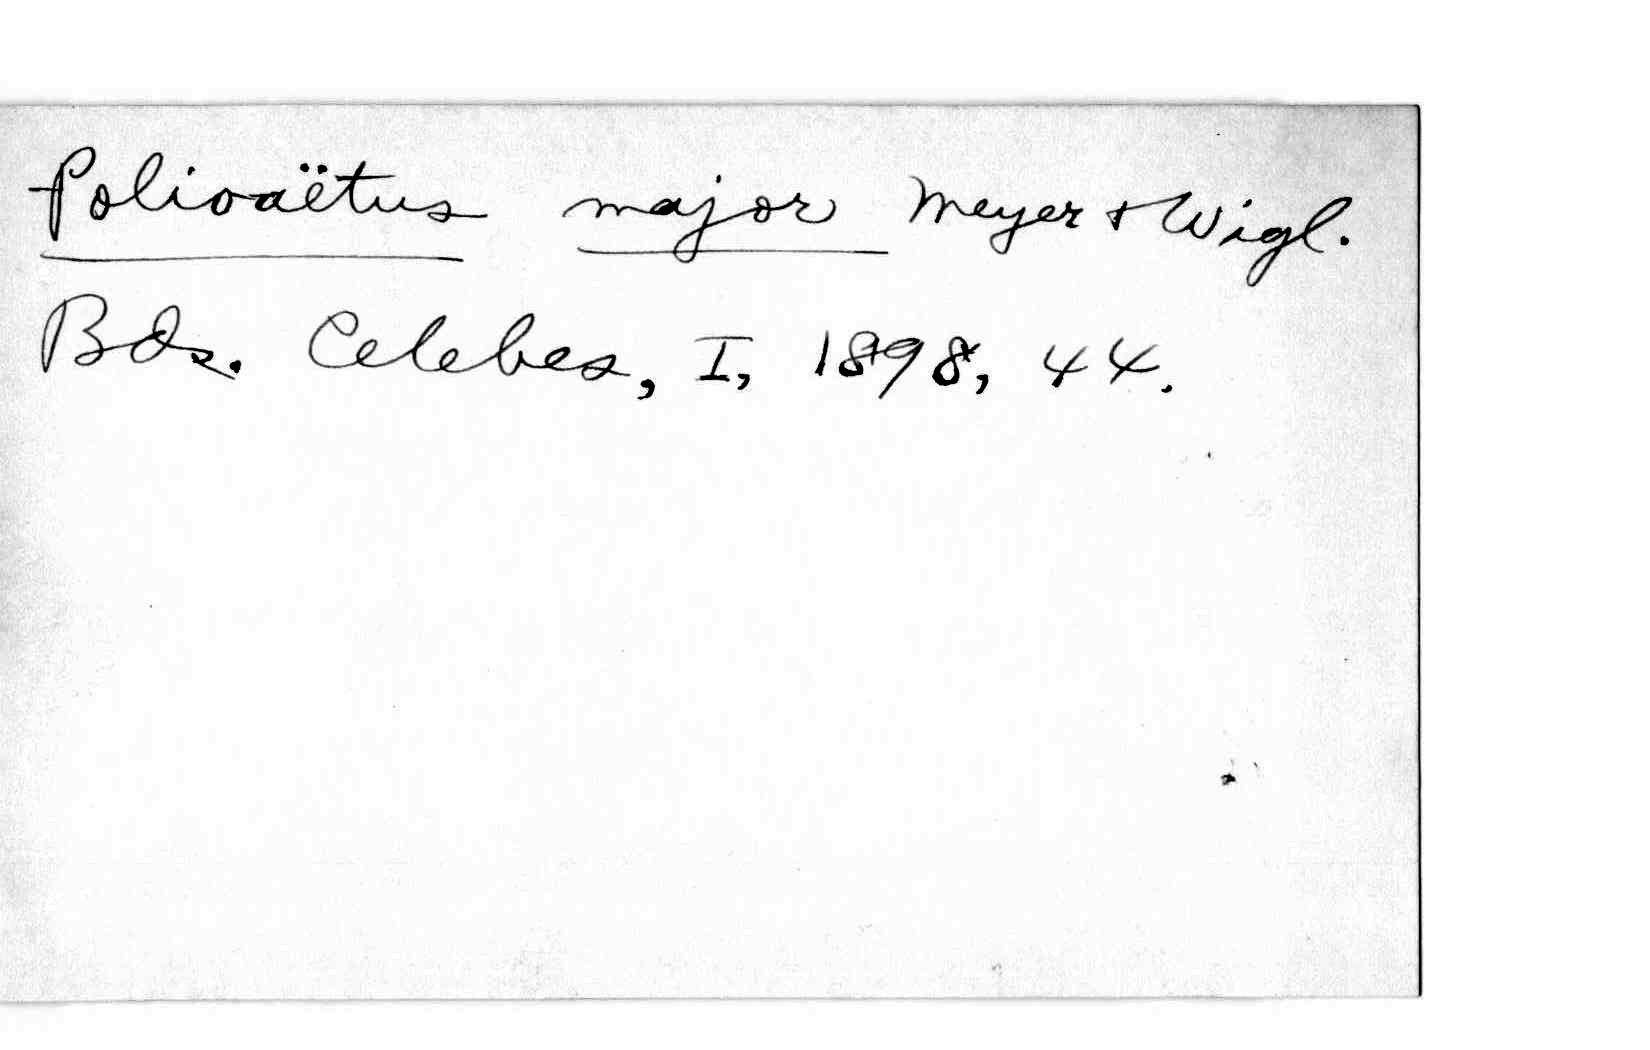 Polioaëtus major Meyer & Wigl.
Bds. Celebes, I, 1898, 44.